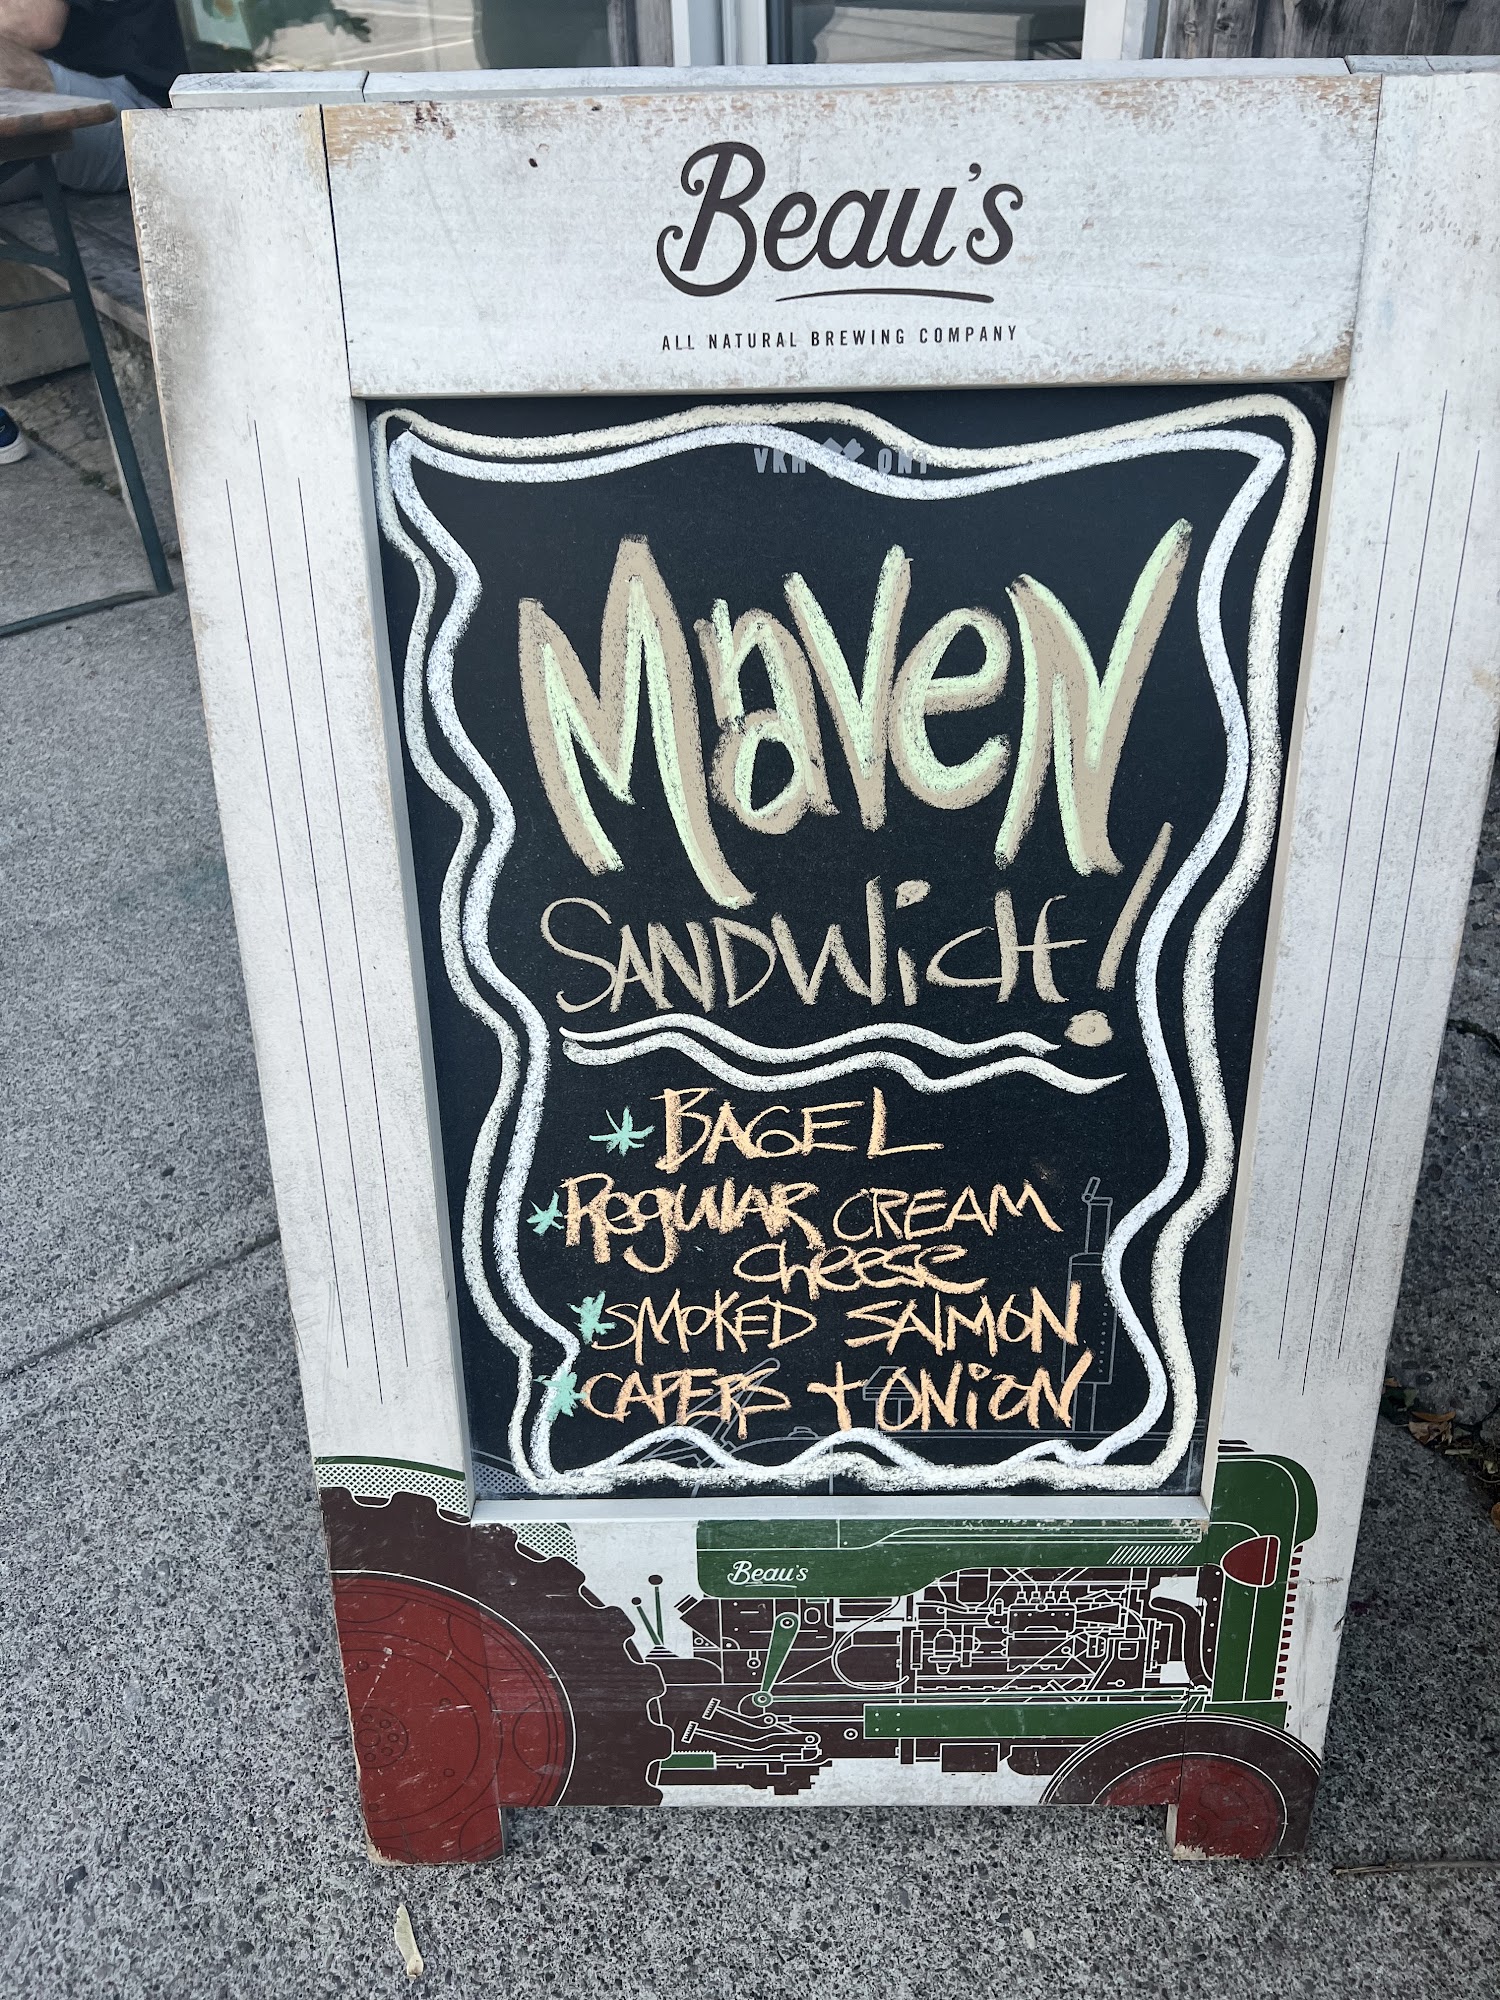 Beau's
ALL NATURAL BREWING COMPANY
VKH ONT
Maven
SANDWicH!
* BAGEL
* RegulAR CREAM
cheese
* SMOKED SAlMON
* CAPERS + ONiON
Beau's